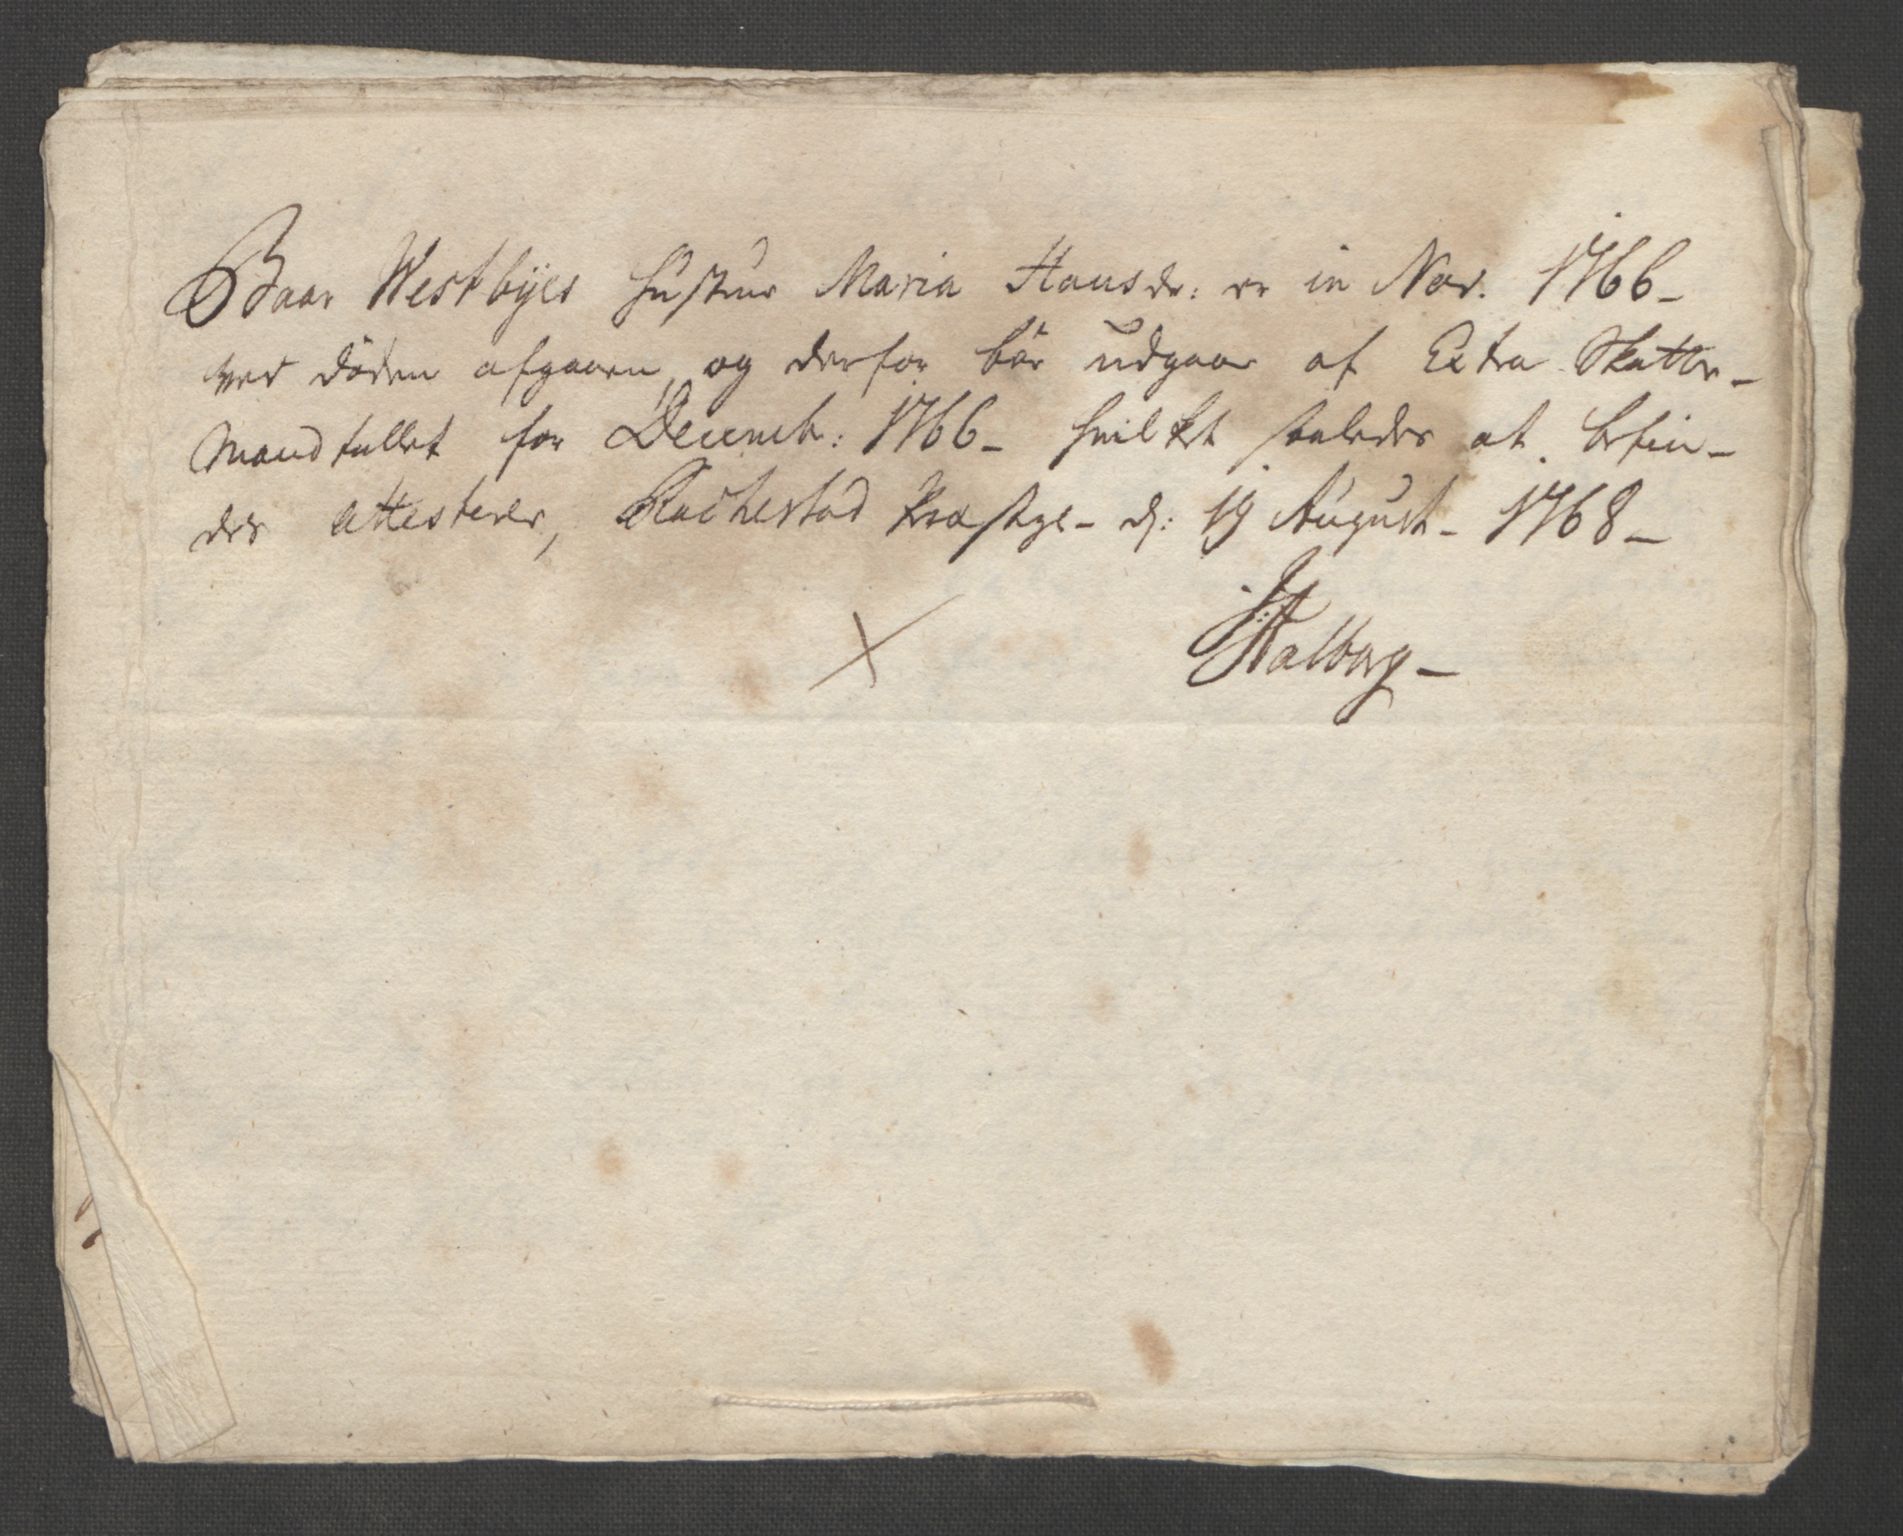 Baar Westbÿes Hustrue Maria Hansdr: er in Nov. 1766 -
ved döden afgaaen, og derfor bör udgaae af Extra Skatte-
Mandtallet for Decembr: 1766 - hvilket saaledes at befin-
des attesterer, Rachestad Præstge- d: 19 August - 1768 -
Aalborg -